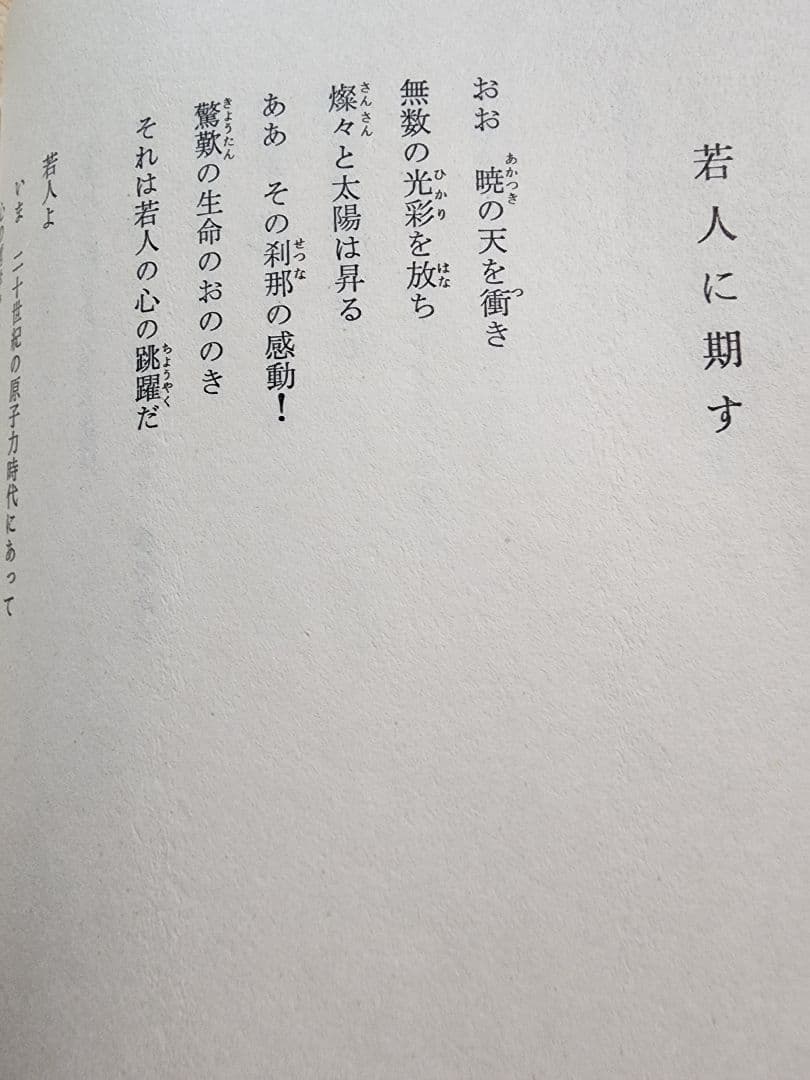 若人に期す
おお　暁の天を衝き
無数の光彩を放ち
燦々と太陽は昇る
ああ　その刹那の感動！
驚歎の生命のおののき
それは若人の心の跳躍だ
若人よ
いま　二十世紀の原子力時代にあって